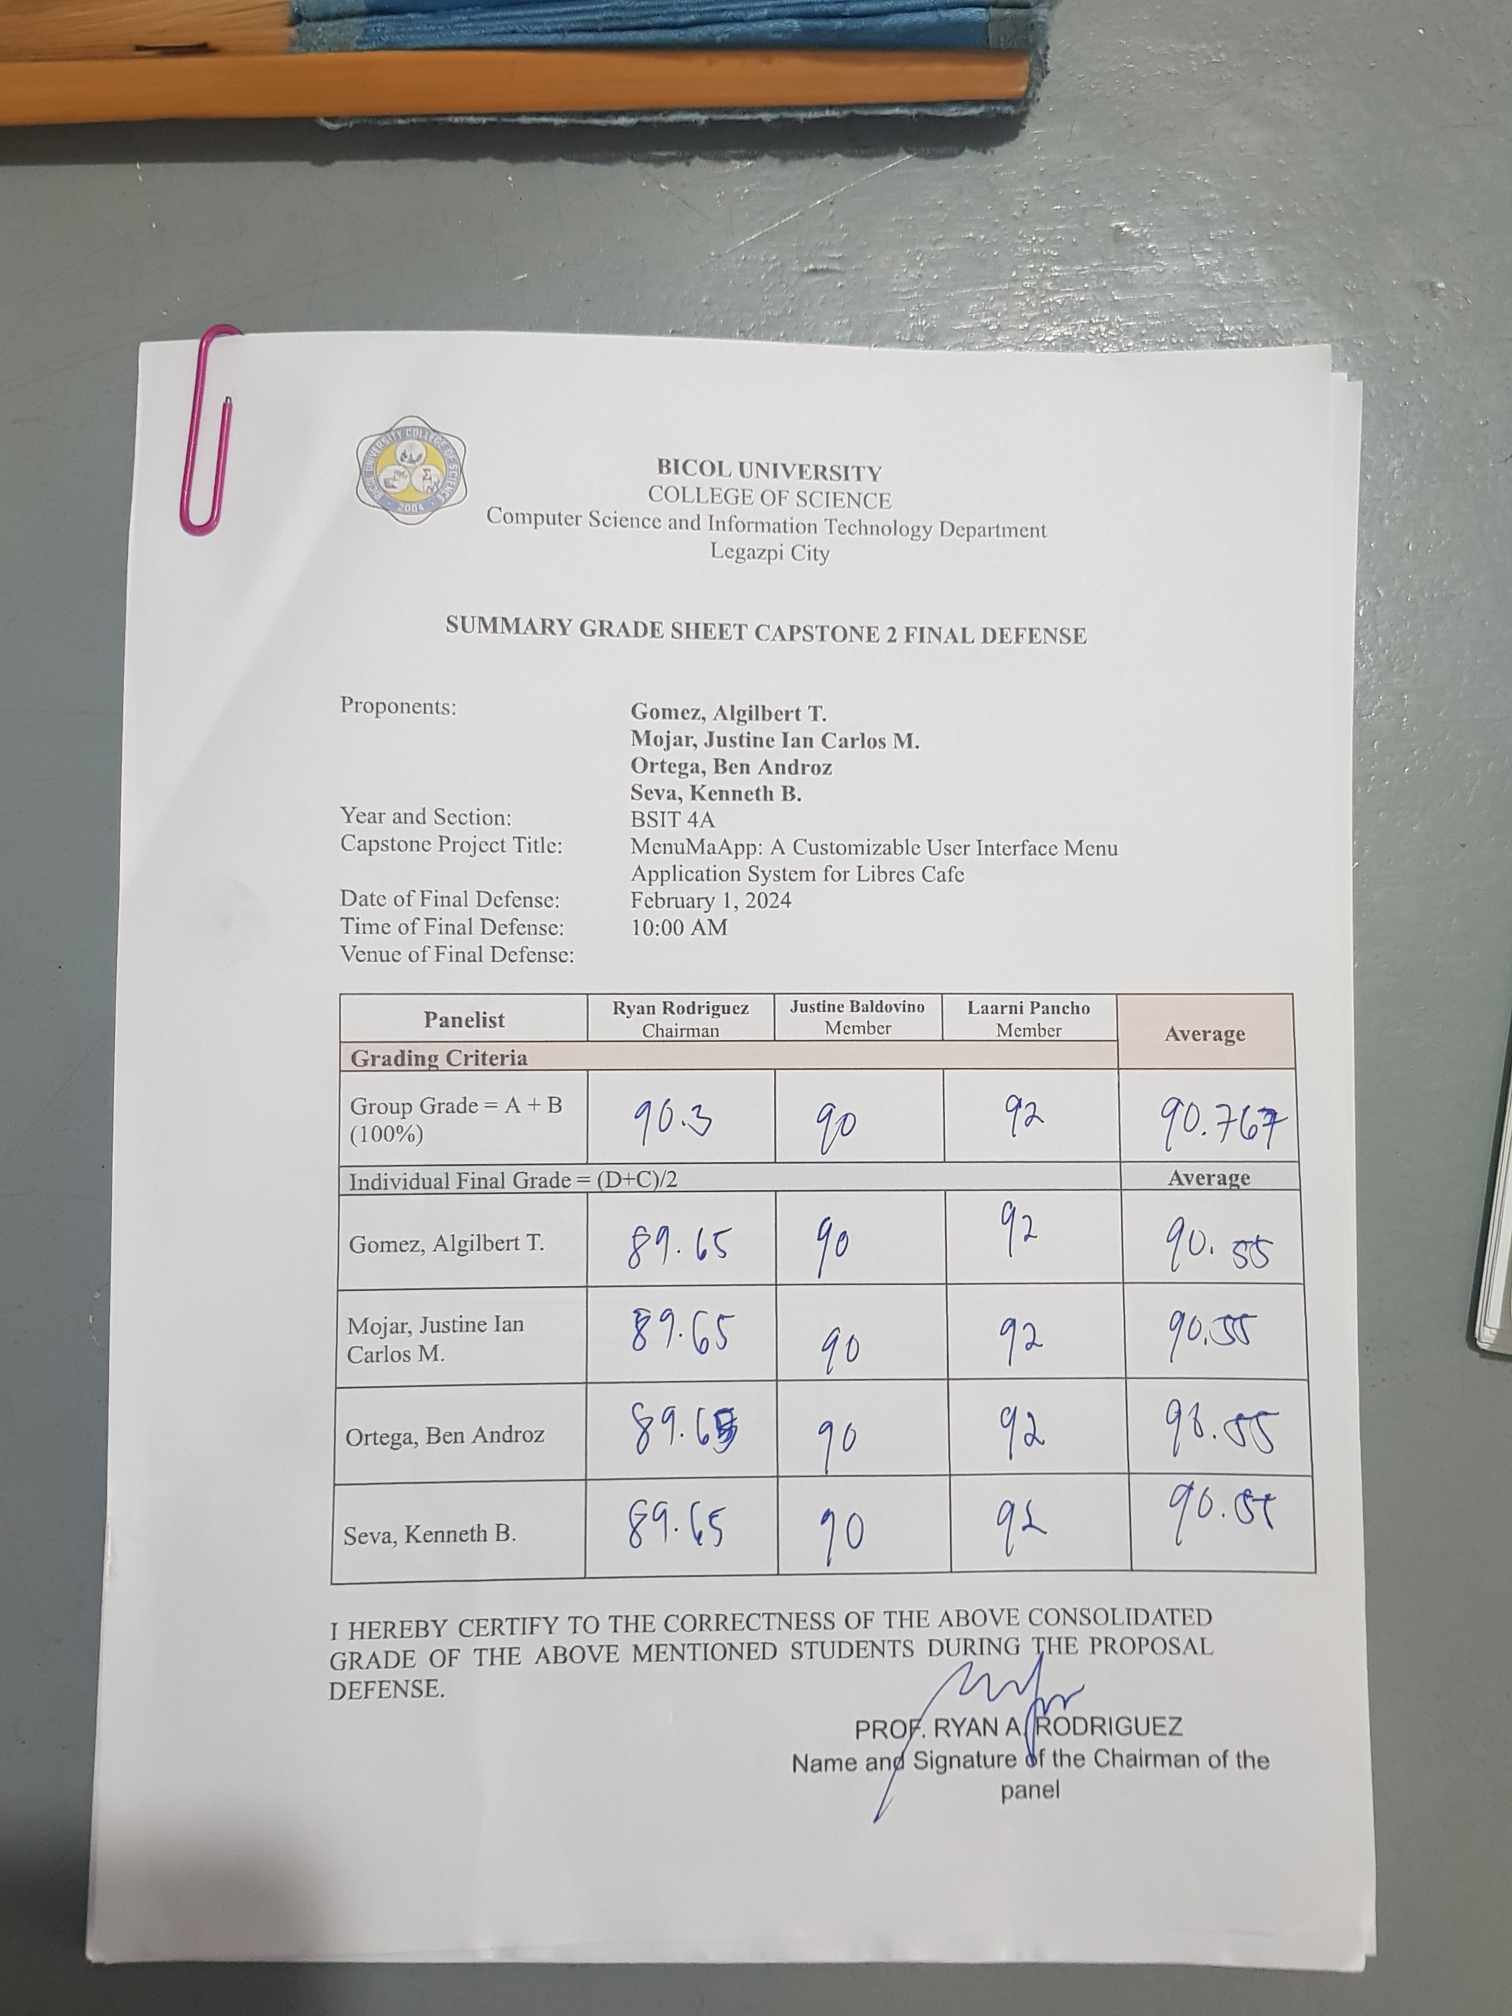 BICOL UNIVERSITY COLLEGE OF SCIENCE
2004
BICOL UNIVERSITY
COLLEGE OF SCIENCE
Computer Science and Information Technology Department
Legazpi City
SUMMARY GRADE SHEET CAPSTONE 2 FINAL DEFENSE
Proponents: Gomez, Algilbert T.
Mojar, Justine Ian Carlos M.
Ortega, Ben Androz
Seva, Kenneth B.
Year and Section: BSIT 4A
Capstone Project Title: MenuMaApp: A Customizable User Interface Menu
Application System for Libres Cafe
Date of Final Defense: February 1, 2024
Time of Final Defense: 10:00 AM
Venue of Final Defense:
Panelist Ryan Rodriguez Justine Baldovino Laarni Pancho Average
Chairman Member Member
Grading Criteria
Group Grade = A + B 90.3 90 92 90.767
(100%)
Individual Final Grade = (D+C)/2 Average
Gomez, Algilbert T. 89.65 90 92 90.55
Mojar, Justine Ian 89.65 90 92 90.55
Carlos M.
Ortega, Ben Androz 89.65 90 92 90.55
Seva, Kenneth B. 89.65 90 92 90.55
I HEREBY CERTIFY TO THE CORRECTNESS OF THE ABOVE CONSOLIDATED
GRADE OF THE ABOVE MENTIONED STUDENTS DURING THE PROPOSAL
DEFENSE.
PROF. RYAN A. RODRIGUEZ
Name and Signature of the Chairman of the
panel